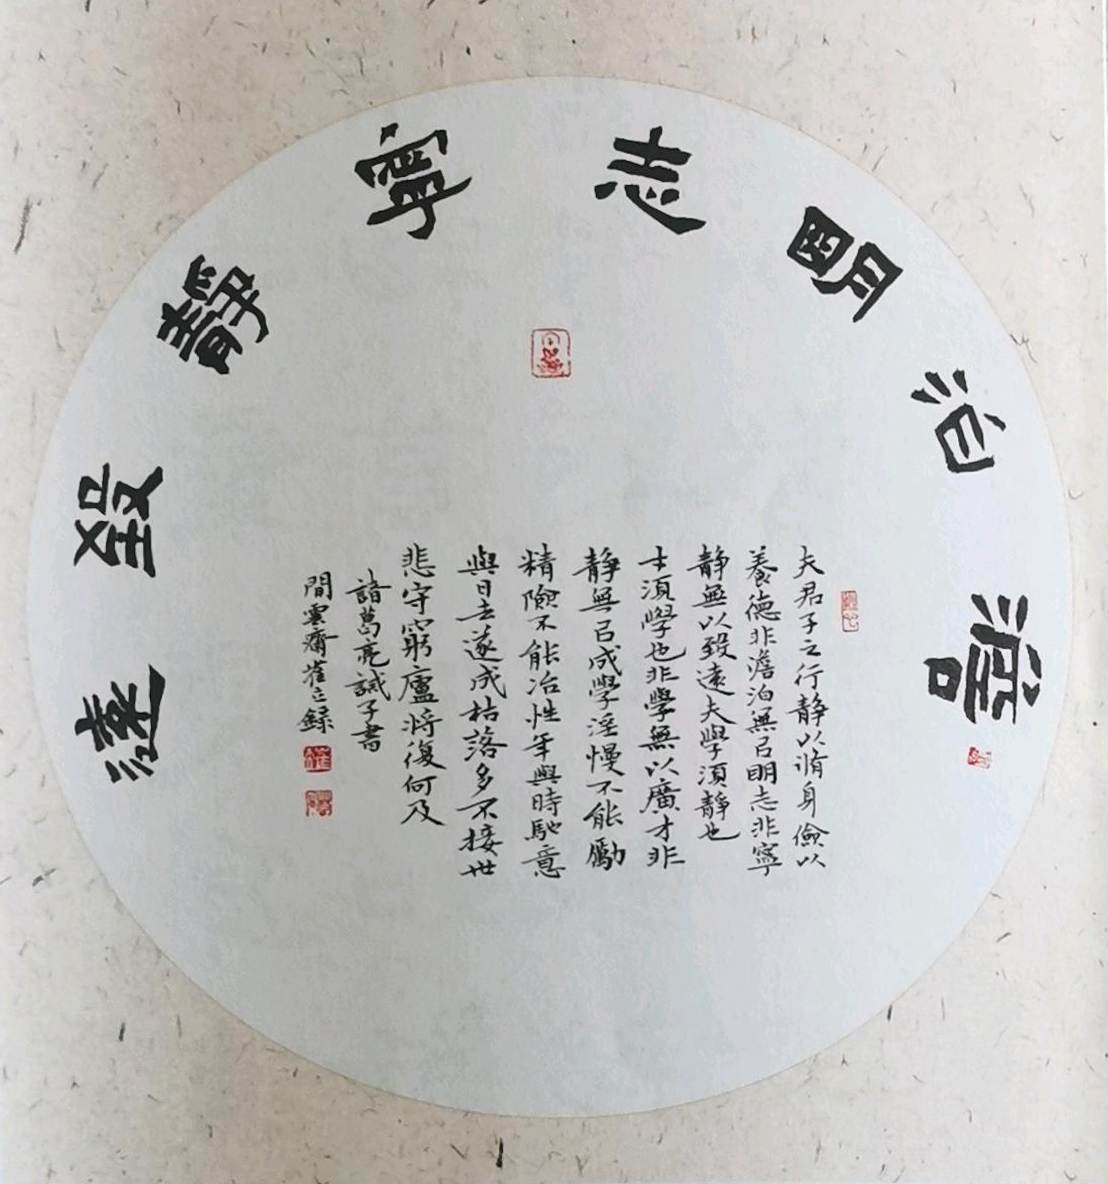 澹泊明志寧靜致遠
夫君子之行静以脩身儉以
養德非澹泊無㠯明志非寧
静無以致遠夫學須静也
士須學也非學無以廣才非
静無㠯成學淫慢不能勵
精險不能冶性年與時馳意
與日去遂成枯落多不接世
悲守窮廬將復何及
諸葛亮誡子書
間雲齋崔立録